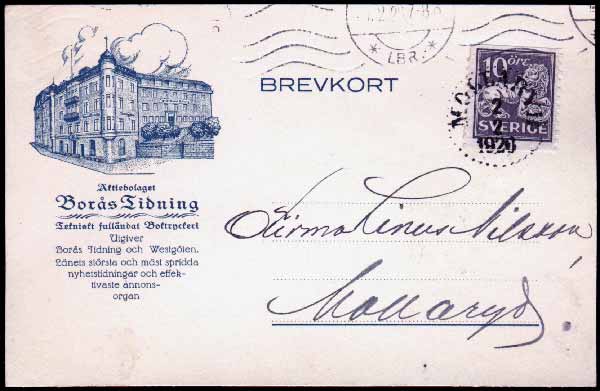 LBR.
BREVKORT
10 ÖRE
SVERIGE
2
2
1920
Aktiebolaget
Borås Tidning
Tekniskt fulländat Boktryckeri
Utgiver
Borås Tidning och Westgöten.
Länets största och mäst spridda
nyhetstidningar och effek-
tivaste annons-
organ
Firma Linus Nilsson,
Mollaryd